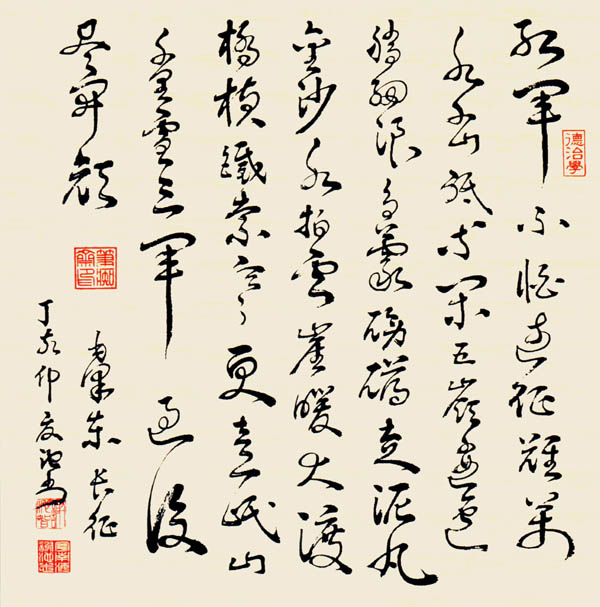 紅軍不怕遠征難萬
水千山祇等閑五嶺逶迤
騰細浪烏蒙磅礴走泥丸
金沙水拍雲崖暖大渡
橋橫鐵索寒更喜岷山
千里雪三軍過後
盡開顏
毛澤東長征
丁亥仲夏德治書
德治學